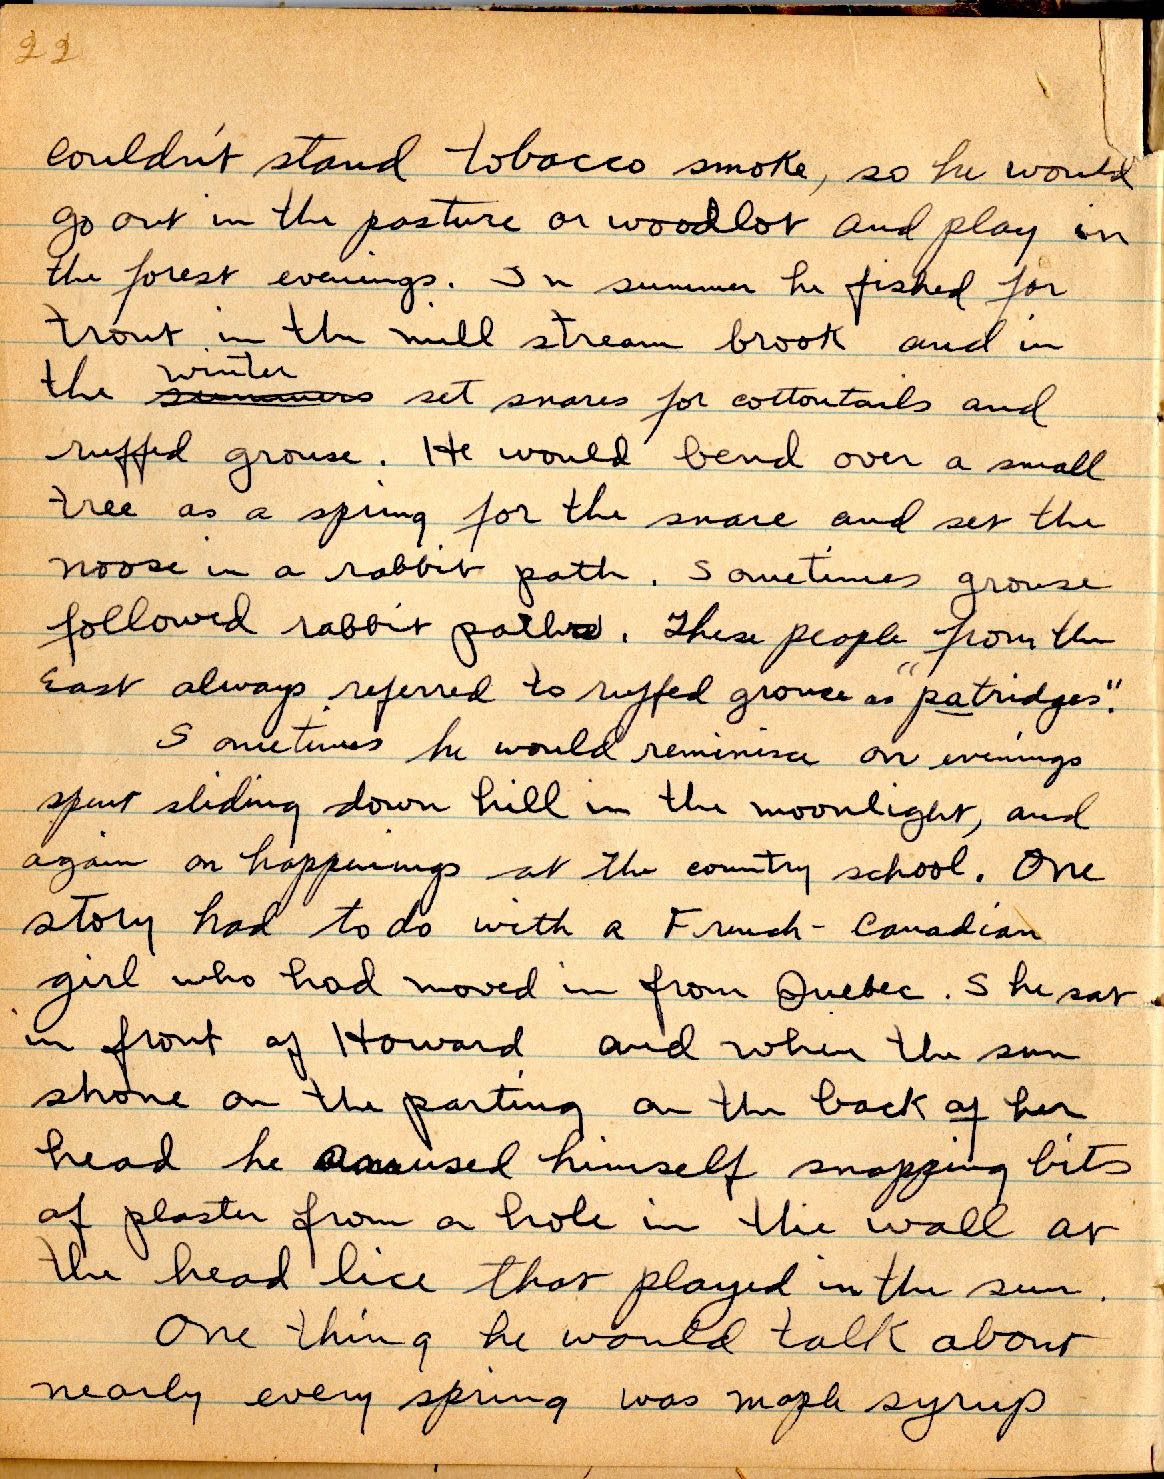 22
couldn't stand tobacco smoke, so he would
go out in the pasture or woodlot and play in
the forest evenings. In summer he fished for
trout in the mill stream brook and in
winter
the summers set snares for cottontails and
ruffed grouse. He would bend over a small
tree as a spring for the snare and set the
noose in a rabbit path. Sometimes grouse
followed rabbit paths. These people from the
East always referred to ruffed grouse as "patridges".
Sometimes he would reminisce on evenings
spent sliding down hill in the moonlight, and
again on happenings at the country school. One
story had to do with a French-Canadian
girl who had moved in from Quebec. She sat
in front of Howard and when the sun
shone on the parting on the back of her
head he amused himself snapping bits
of plaster from a hole in the wall at
the head lice that played in the sun.
One thing he would talk about
nearly every spring was maple syrup